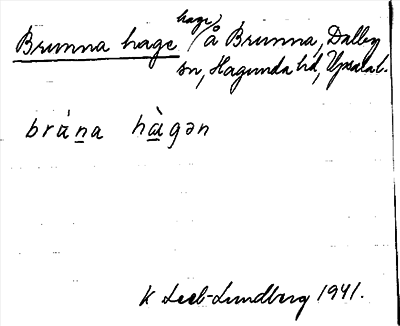 Brunna hage hage, å Brunna, Dalby
sn, Hagunda hd, Upsala l.
brάṉa hὰ̱gən
K Leeb-Lundberg 1941.